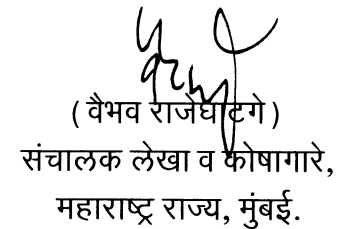 ( वैभव राजेघाटगे )
संचालक लेखा व कोषागारे,
महाराष्ट्र राज्य, मुंबई.